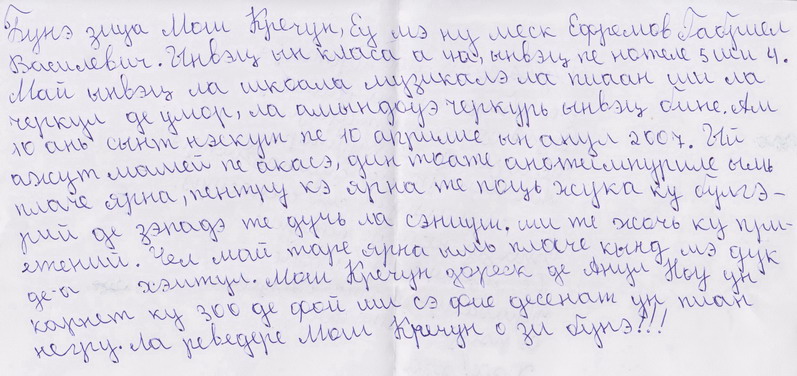 Бунэ зиуа Мош Крэчун, Еу мэ ну меск Ефремов Габриел
Василевич. Ынвэц ын класа а па, ынвэц пе нотеле 5 ши 4.
Май ынвэц ла шкоала музикалэ ла пиаан ши ла
черкул де умор, ла амындоуэ черкурь ынвэц бине. Ам
10 ань сынт нэскут пе 10 априлие ын анул 2007. Ый
ажут мамей пе акасэ, дин тоате анотимпуриле ымь
плаче ярна, пентру кэ ярна те поць жука ку булгэ-
рий де зэпадэ те дучь ла сэниуш. ши те жочь ку при-
етений. Чел май таре ярна ымь плаче кынд мэ дук
де-а хэитул. Мош Крэчун дореск де Анул Ноу ун
карнет ку 300 де фой ши сэ фие десенат ун пиан
негру. Ла реведере Мош Крэчун о зи бунэ!!!